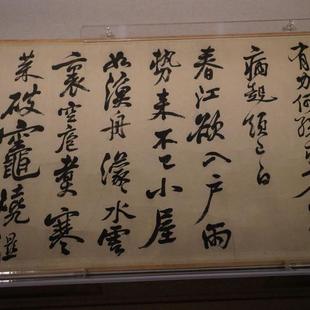 有力何殊
病起頭已白
春江欲入戶雨
勢来不已小屋
如漁舟濛水雲
裏空庖煮寒
菜破竈燒濕